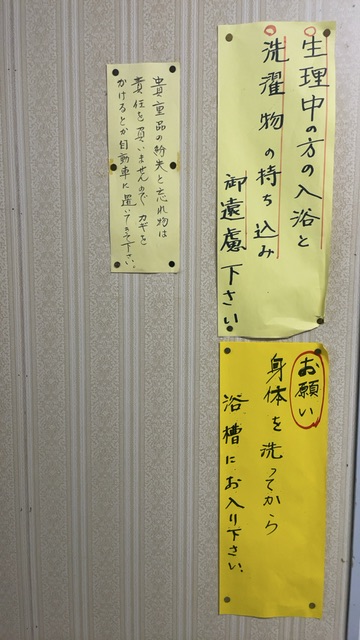 生理中の方の入浴と
洗濯物の持ち込み
御遠慮下さい
お願い
身体を洗ってから
浴槽にお入り下さい
貴重品の紛失と忘れ物は
責任を負いませんので カギを
かけるとか自動車に置いて来て下さい